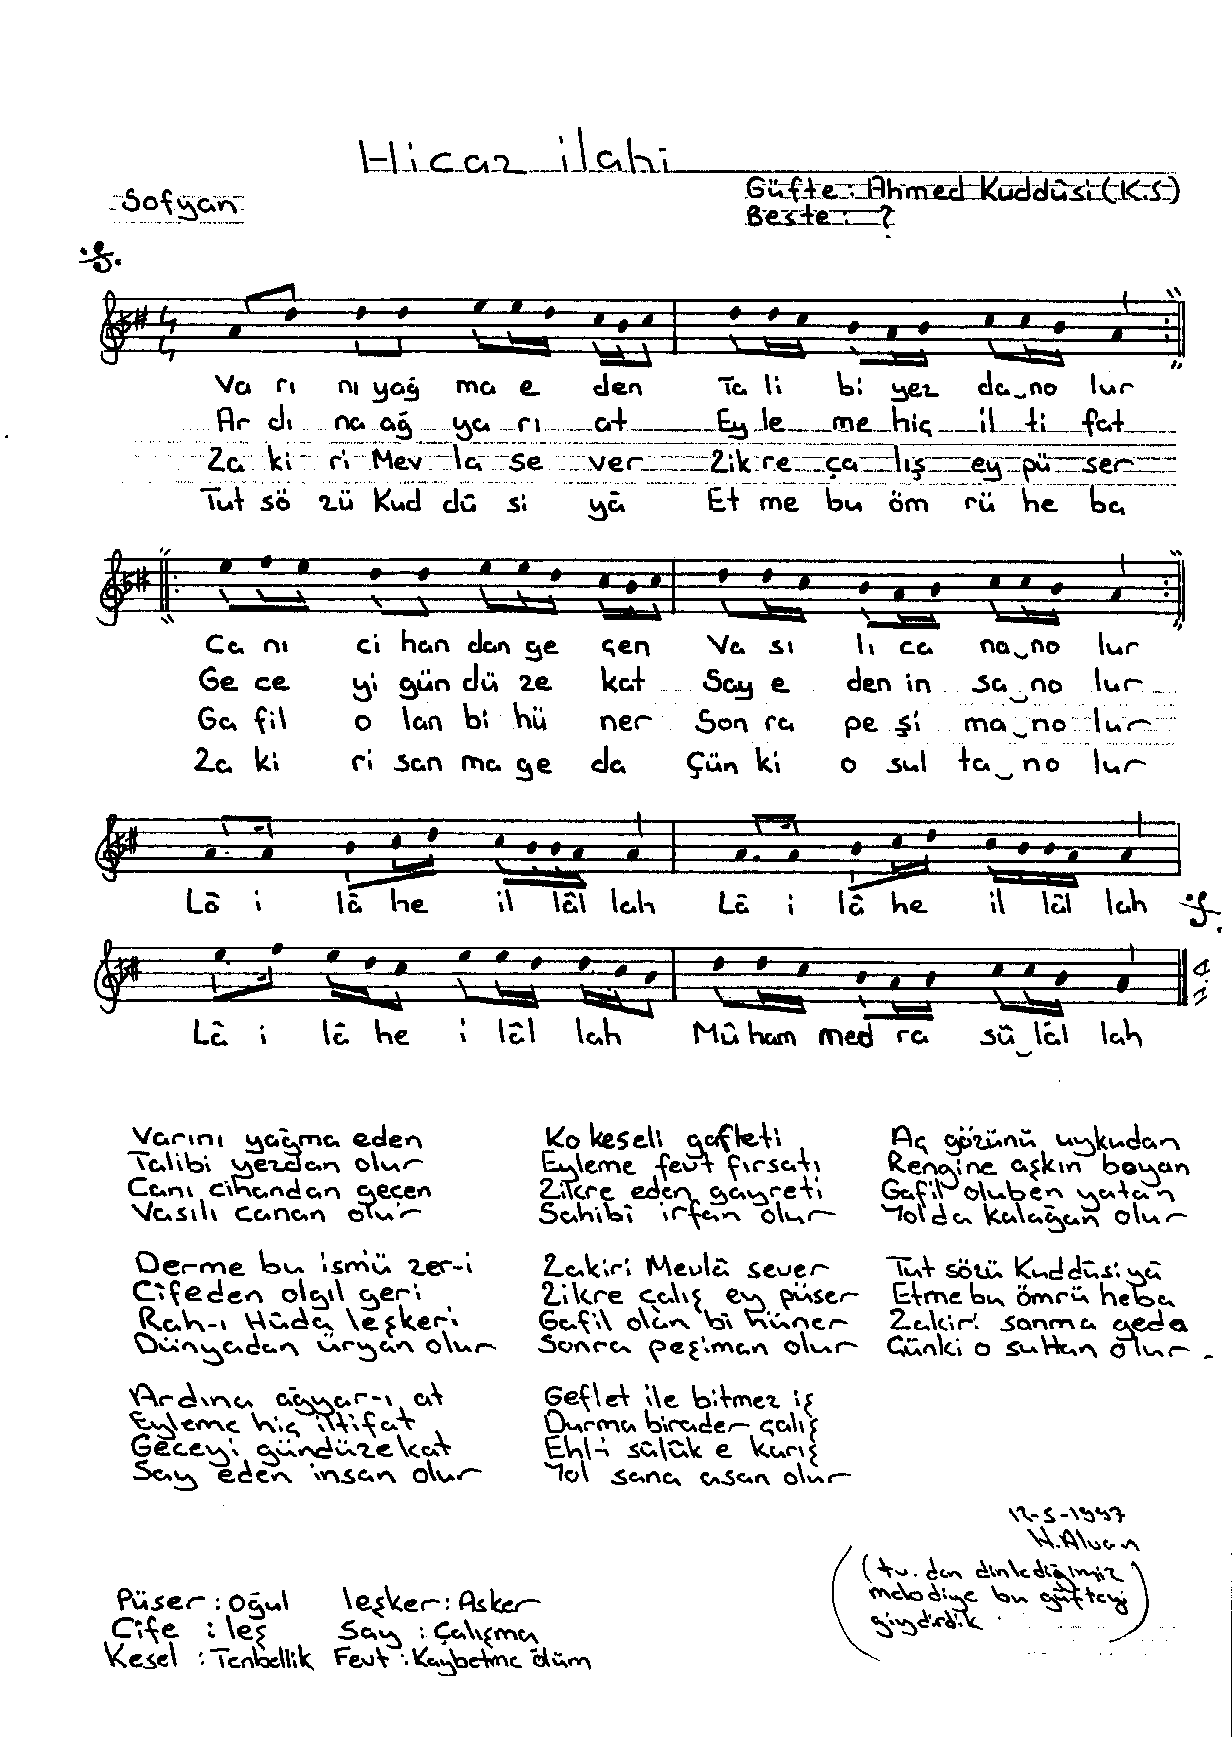 Hicaz ilahi
Sofyan
Güfte: Ahmed Kuddûsi (K.S)
Beste: ?
Va rı nı yağ ma e den Ta li bi yez da_no lur
Ar dı na ağ ya rı at Ey le me hiç il ti fat
Za ki ri Mev la se ver Zik re ça lış ey pü ser
Tut sö zü Kud dû si yâ Et me bu öm rü he ba
Ca nı ci han dan ge çen Va sı lı ca na_no lur
Ge ce yi gün dü ze kat Say e den in sa_no lur
Ga fil o lan bi hü ner Son ra pe şi ma_no lur
Za ki ri san ma ge da Çün ki o sul ta_no lur
Lâ i lâ he il lâl lah Lâ i lâ he il lâl lah
Lâ i lâ he i lâl lah Mû ham med ra sû_lâl lah
Varını yağma eden
Talibi yezdan olur
Canı cihandan geçen
Vasılı canan olur
Derme bu ismü zer-i
Cifeden olgıl geri
Rah-ı Hüda leşkeri
Dünyadan üryan olur
Ardına ağyar-ı at
Eyleme hiç iltifat
Geceyi gündüze kat
Say eden insan olur
Ko keseli gafleti
Eyleme fevt fırsatı
Zikre eden gayreti
Sahibi irfan olur
Zakiri Mevlâ sever
Zikre çalış ey püser
Gafil olan bi hüner
Sonra peşiman olur
Geflet ile bitmez iş
Durma birader çalış
Ehl-i sülûk e karış
Yol sana asan olur
Aç gözünü uykudan
Rengine aşkın boyan
Gafil oluben yatan
Yolda kalağan olur
Tut sözü Kuddûsi yâ
Etme bu ömrü heba
Zakiri sanma geda
Çünki o sultan olur
12-5-1997
H. Alvan
(tv. dan dinlediğimiz
melodiye bu güfteyi
giydirdik)
Püser : Oğul leşker : Asker
Cife : leş Say : Çalışma
Kesel : Tenbellik Fevt : Kaybetme ölüm